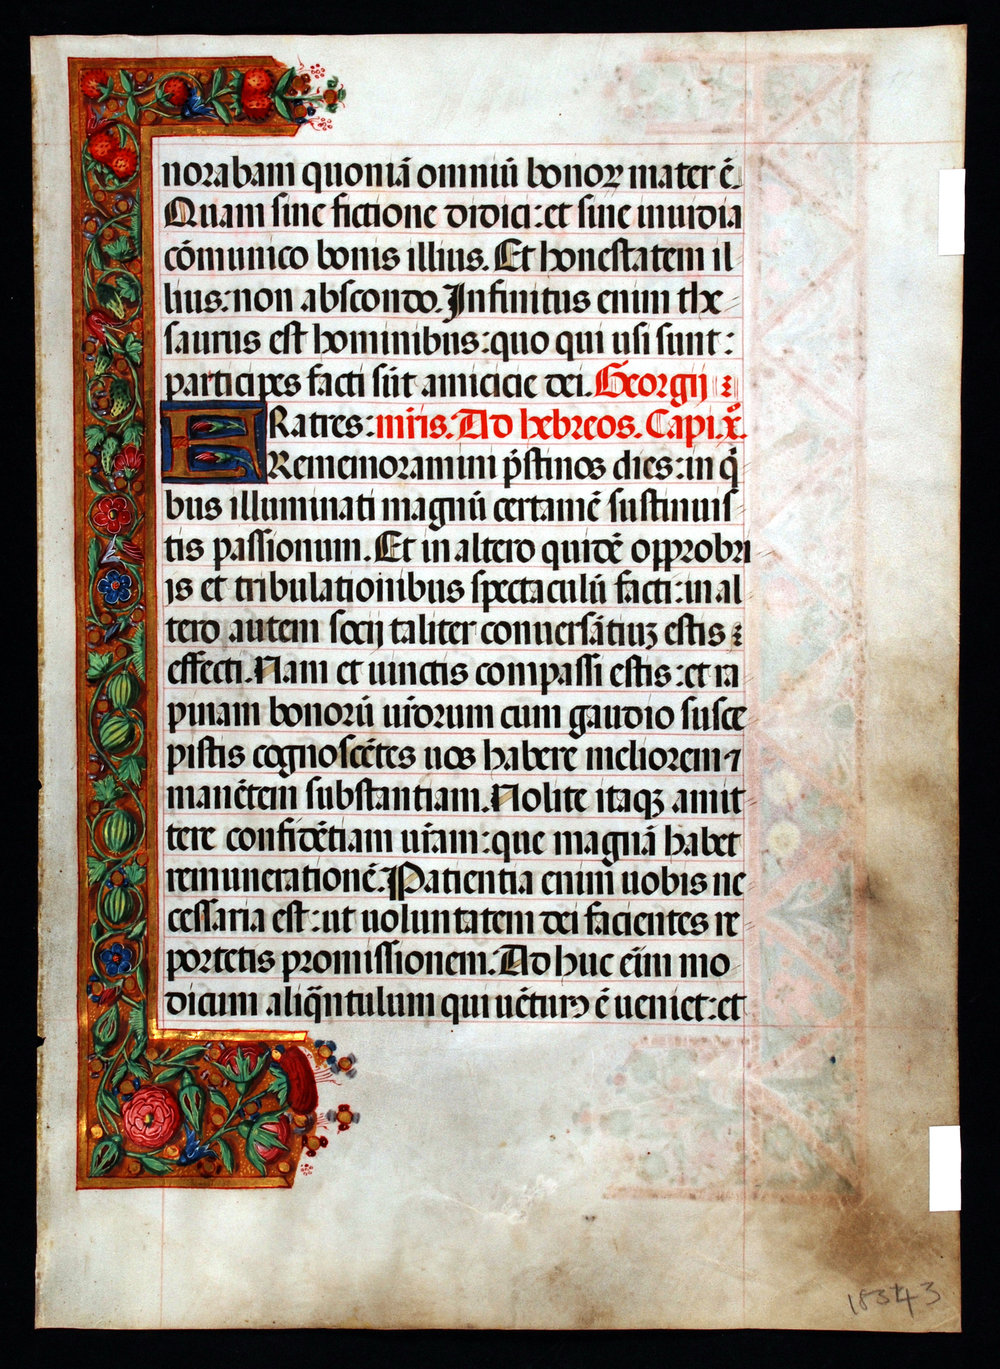 norabam quoniā omniū bonoꝝ mater ē.
Quam sine fictione didici: et sine inuidia
cōmunico bonis illius. Et honestatem il
lius: non abscondo. Infinitus enim the
saurus est hominibus: quo qui usi sunt:
participes facti sūt amicicie dei. Georgij
FRatres: mr̄is. Ad hebreos. Capi. x̊.
Rememoramini p̄stinos dies: in q̄
bus illuminati magnū certamē sustinuis
tis passionum. Et in altero quidē opprobri
is et tribulationibus spectaculū facti: in al
tero autem socij taliter conuersātiuꝫ estis
effecti. Nam et uinctis compassi estis: et ra
pinam bonorū ur̄orum cum gaudio susce
pistis cognoscētes uos habere meliorem ⁊
manētem substantiam. Nolite itaqꝫ amit
tere confidētiam ur̄am: que magnā habet
remunerationē. Patientia enim uobis ne
cessaria est: ut uoluntatem dei facientes re
portetis promissionem. Ad huc eīm mo
dicum aliq̄ntulum qui uēturꝰ ē ueniet: et
18343